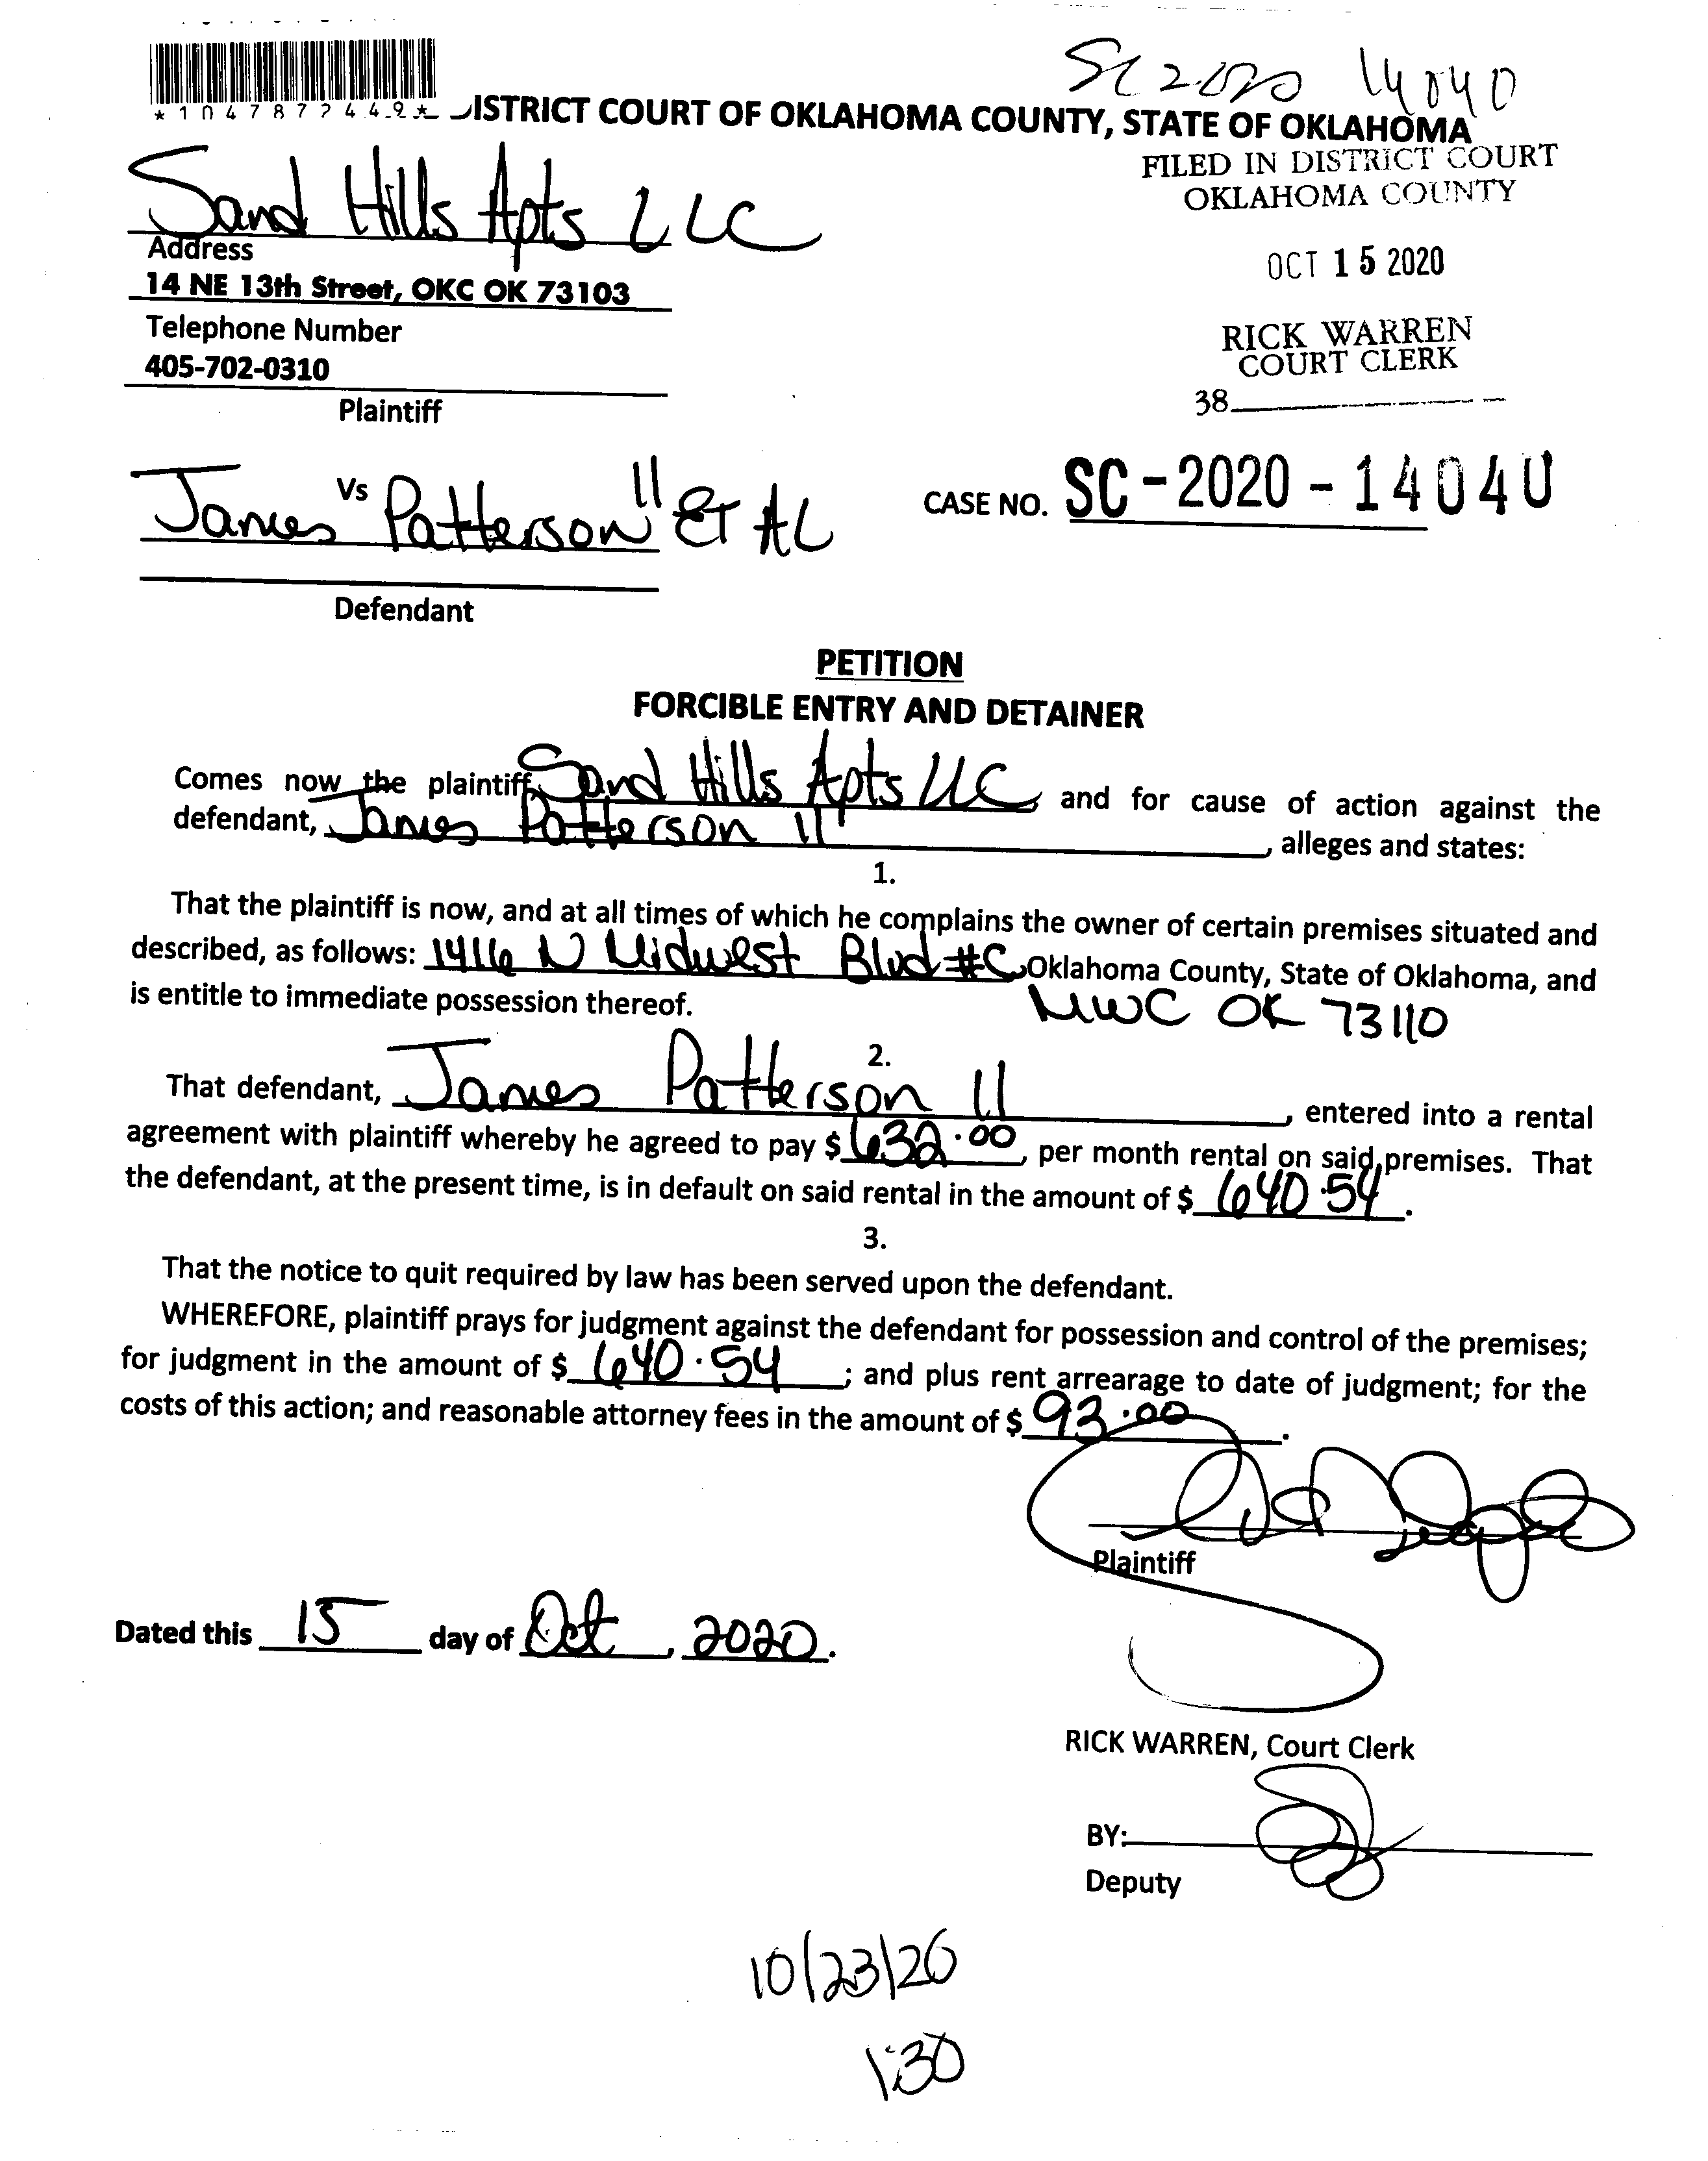 SC 2020 14040
*1047872449*
DISTRICT COURT OF OKLAHOMA COUNTY, STATE OF OKLAHOMA
FILED IN DISTRICT COURT
OKLAHOMA COUNTY
Sand Hills Apts LLC
Address
14 NE 13th Street, OKC OK 73103
OCT 15 2020
Telephone Number
405-702-0310
RICK WARREN
COURT CLERK
38
Plaintiff
Vs
James Patterson II ET AL
CASE NO. SC-2020-14040
Defendant
PETITION
FORCIBLE ENTRY AND DETAINER
Comes now the plaintiff, Sand Hills Apts LLC, and for cause of action against the
defendant, James Patterson II, alleges and states:
1.
That the plaintiff is now, and at all times of which he complains the owner of certain premises situated and
described, as follows: 1416 N Midwest Blvd #C, Oklahoma County, State of Oklahoma, and
is entitle to immediate possession thereof. MWC OK 73110
2.
That defendant, James Patterson II, entered into a rental
agreement with plaintiff whereby he agreed to pay $ 632.00, per month rental on said premises. That
the defendant, at the present time, is in default on said rental in the amount of $ 640.54.
3.
That the notice to quit required by law has been served upon the defendant.
WHEREFORE, plaintiff prays for judgment against the defendant for possession and control of the premises;
for judgment in the amount of $ 640.54; and plus rent arrearage to date of judgment; for the
costs of this action; and reasonable attorney fees in the amount of $ 93.00.
Plaintiff
Dated this 15 day of Oct, 2020.
RICK WARREN, Court Clerk
BY:
Deputy
10/23/20
1:30